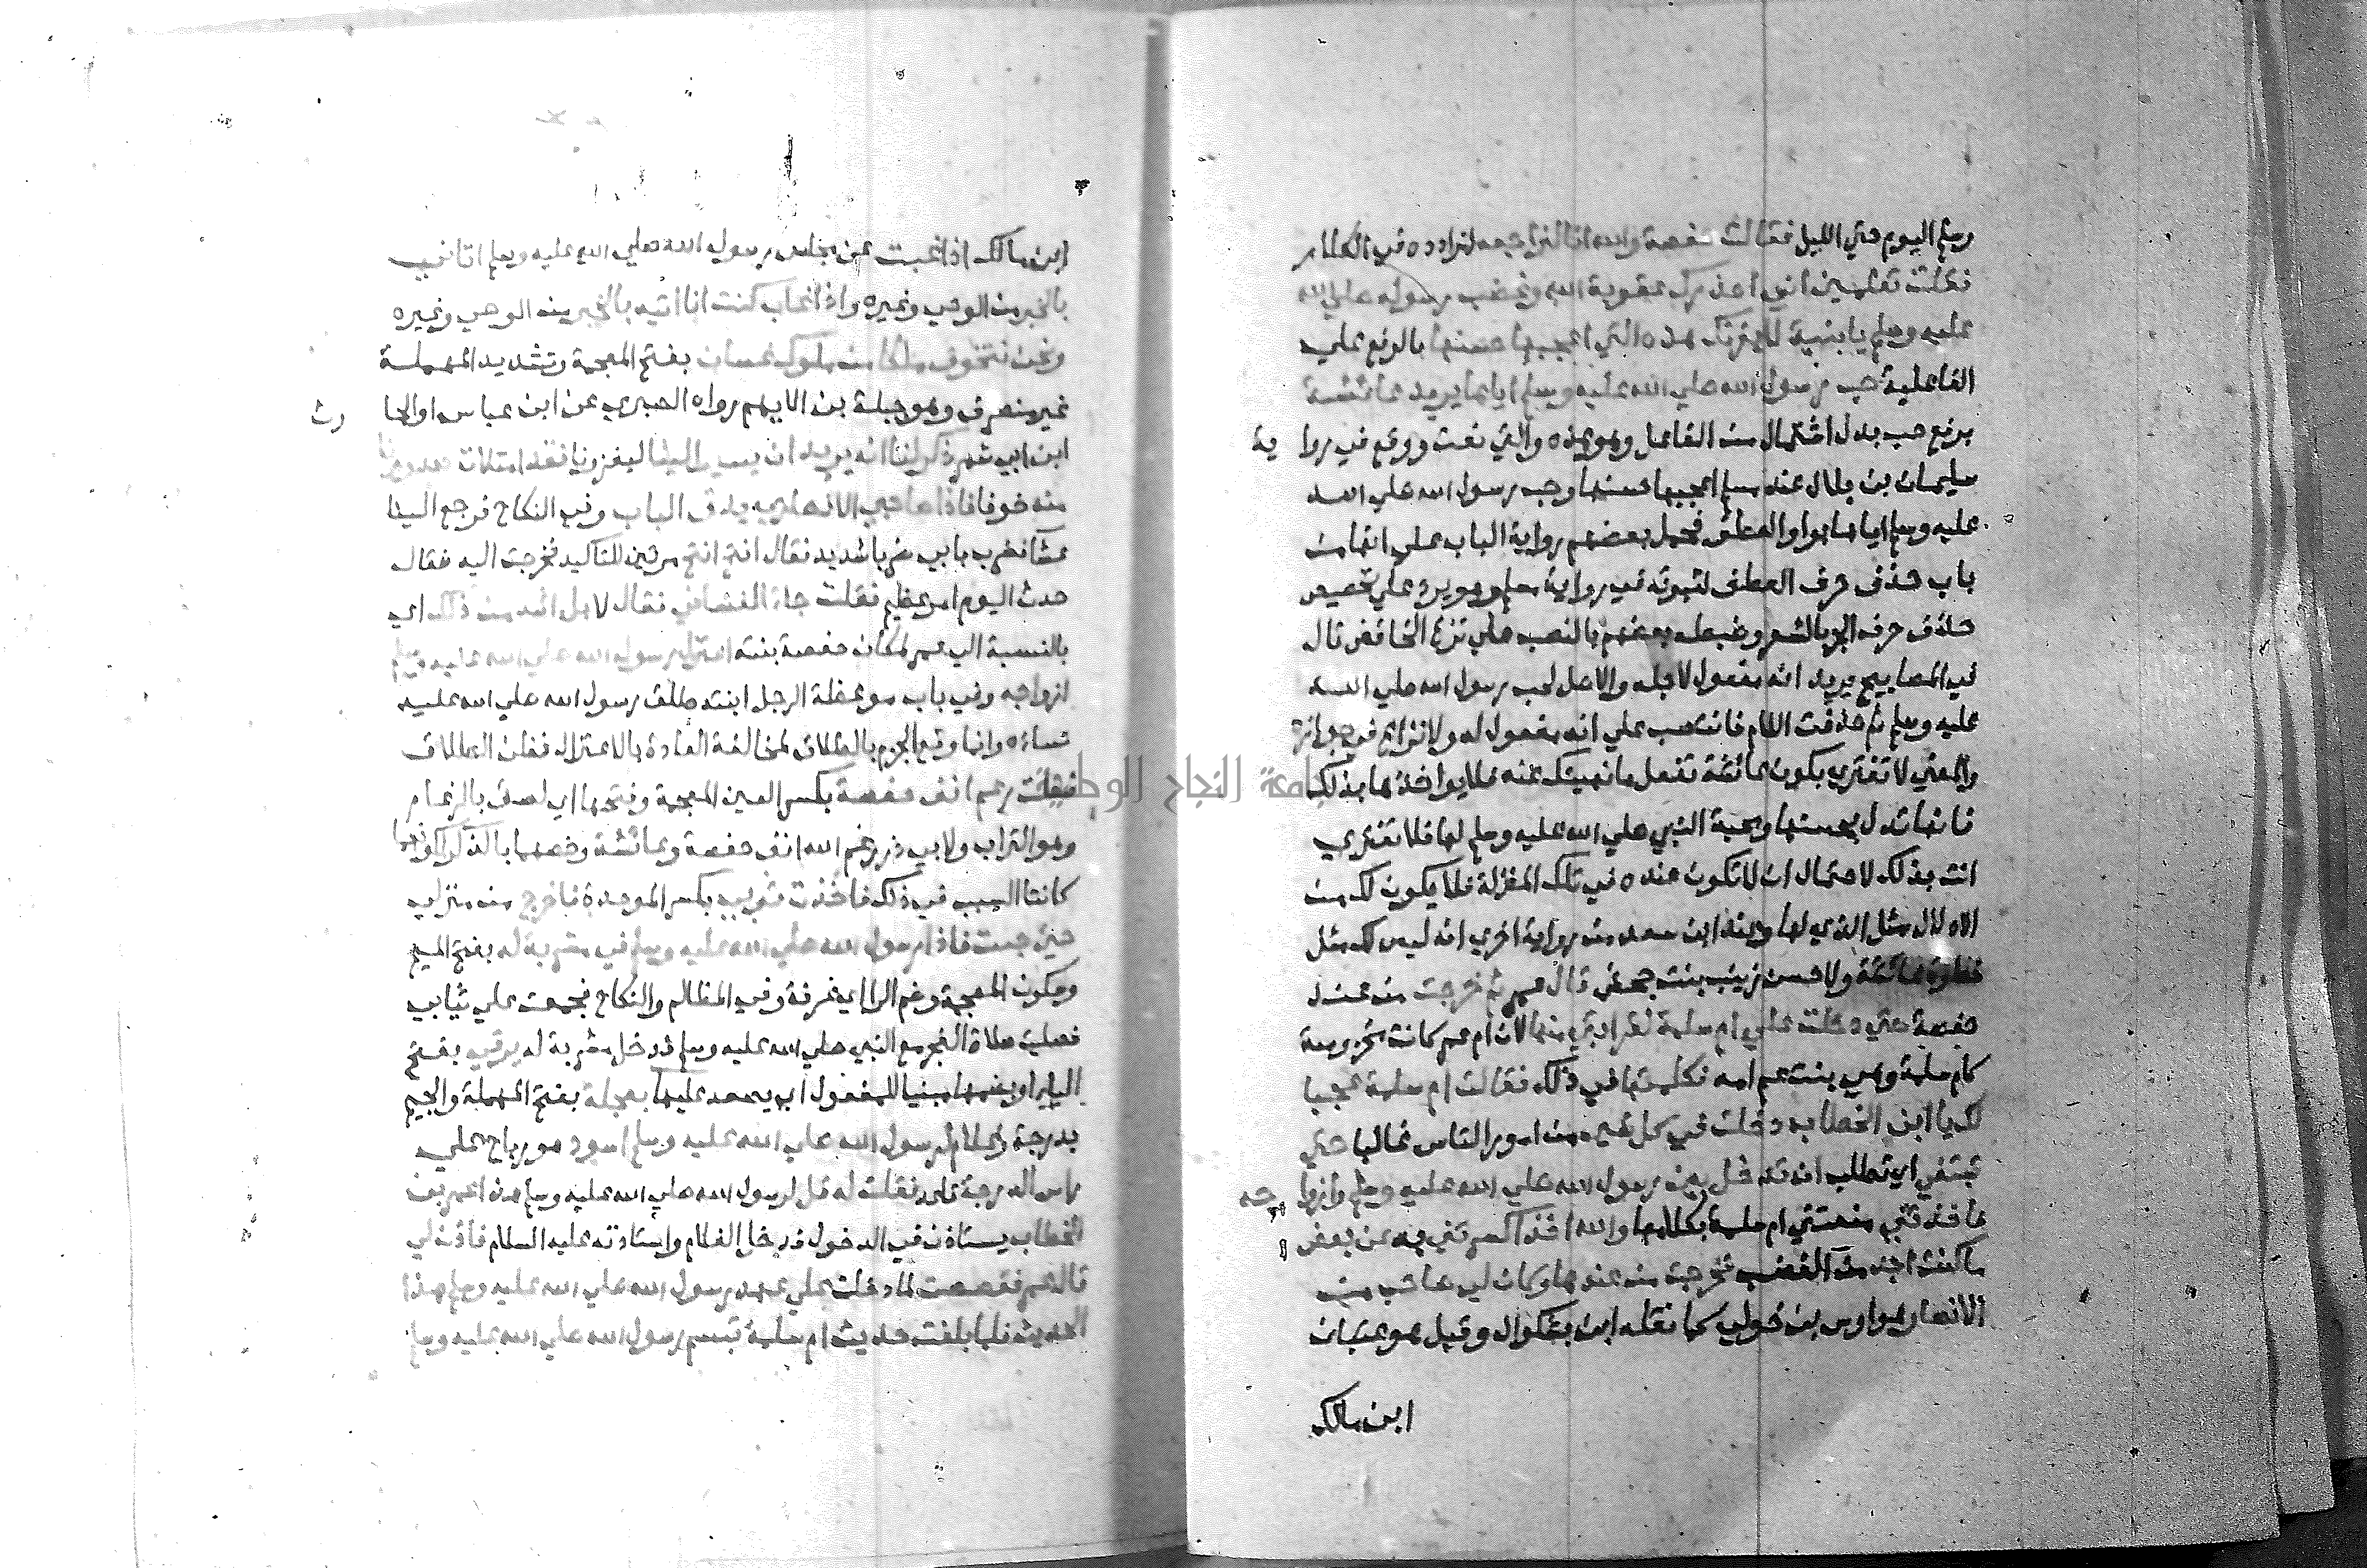 وسلم اليوم حتي الليل فقالت حفصة والله انا لنراجعه لنرادده في الكلام
فقلت تعلمين اني احذرك عقوبة الله وغضب رسوله صلي الله
عليه وسلم يا بنية لا يغرنك هذه التي اعجبها حسنها بالرفع علي
الفاعلية حب رسول الله صلي الله عليه وسلم اياها يريد عائشة
برفع حب بدل اشتمال من الفاعل وهو هذه والتي نعت ووقع في روا ية
سليمان بن بلال عند مسلم اعجبها حسنها وحب رسول الله صلي الله
عليه وسلم اياها بواو العطف فحمل بعضهم رواية الباب علي انها من
باب حذف حرف العطف لثبوته في رواية مسلم وهو يرد علي تخصيص
حذف حرف الجر بالشعر وضبطه بعضهم بالنصب علي نزع الخافض قال
في المصابيح يريد انه مفعول لاجله والاصل لحب رسول الله صلي الله
عليه وسلم ثم حذفت اللام فانتصب علي انه مفعول له ولا نزاع في جوازه
والمعني لا تغتري بكون عائشة تفعل ما نهيتك عنه فلا يواخذها بذلك
فانها تدل بحسنها ومحبة النبي صلي الله عليه وسلم لها فلا تغتري
انت بذلك لاحتمال ان لا تكون عنده في تلك المنزلة فلا يكون لك من
الادلال مثل الذي لها وعند ابن سعد من رواية اخري انه ليس لك مثل
حظوة عائشة ولا حسن زينب بنت جحش قال عمر ثم خرجت من عند
حفصة حتي دخلت علي ام سلمة لقرابتي منها لان ام عمر كانت مخزومية
كام سلمة وهي بنت عم امه فكلمتها في ذلك فقالت ام سلمة عجبا
لك يا ابن الخطاب دخلت في كل شيء من امور الناس غالبا حتي
تبتغي اي تطلب ان تدخل بين رسول الله صلي الله عليه وسلم وازوا جه
فاخذتني منعتني ام سلمة بكلامها والله اخذا كسرتني به عن بعض
ما كنت اجد من الغضب فخرجت من عندها وكان لي صاحب من
الانصار هو اوس بن خولي كما نقله ابن بشكوال وقيل هو عتبان
ابن مالك
ابن مالك اذا غبت عن مجلس رسول الله صلي الله عليه وسلم اتاني
بالخبر من الوحي وغيره واذا غاب كنت انا اتيه بالخبر من الوحي وغيره
ونحن نتخوف ملكا من ملوك غسان بفتح المعجمة وتشديد المهملة
غير منصرف وهو جبلة بن الايهم رواه الطبري عن ابن عباس او الحا رث
ابن ابي شمر ذكر لنا انه يريد ان يسير الينا ليغزونا فقد امتلات صدورنا
منه خوفا فاذا صاحبي الانصاري يدق الباب وفي النكاح فرجع الينا
عشا فضرب بابي ضربا شديد فقال افتح افتح مرتين للتاكيد فخرجت اليه فقال
حدث اليوم امر عظيم فقلت جاء الغساني فقال لا بل اشد من ذلك اي
بالنسبة الي عمر لمكان حفصة بنته اعتزل رسول الله صلي الله عليه وسلم
ازواجه وفي باب موعظة الرجل ابنته طلق رسول الله صلي الله عليه
نساءه وانما وقع الجزم بالطلاق لمخالفة العادة بالاعتزال فظن الطلاق
فقلت رغم انف حفصة بكسر الغين المعجمة وفتحها اي لصق بالرغام
وهو التراب ولابي ذر رغم الله انف حفصة وعائشة وخصهما بالذكر لكونهما
كانتا السبب في ذلك فاخذت ثوبي بكسر الموحدة فاخرج من منزلي
حتي جئت فاذا رسول الله صلي الله عليه وسلم في مشربة له بفتح الميم
وسكون المعجمة وضم الراء اي غرفة وفي المظالم والنكاح فجمعت علي ثيابي
فصليت صلاة الفجر مع النبي صلي الله عليه وسلم فدخل مشربة له يرقي بفتح
الياء او بضمها مبنيا للمفعول اي يصعد عليها بعجلة بفتح المهملة والجيم
بدرجة وغلام لرسول الله صلي الله عليه وسلم اسود هو رباح علي
راس الدرجة قاعد فقلت له قل لرسول الله صلي الله عليه وسلم هذا عمر بن
الخطاب يستاذن في الدخول فدخل الغلام واستاذنه عليه السلام فاذن لي
قال عمر فقصصت لما دخلت علي رسول الله صلي الله عليه وسلم هذا
الحديث فلما بلغت حديث ام سلمة تبسم رسول الله صلي الله عليه وسلم
جامعة النجاح الوطنية